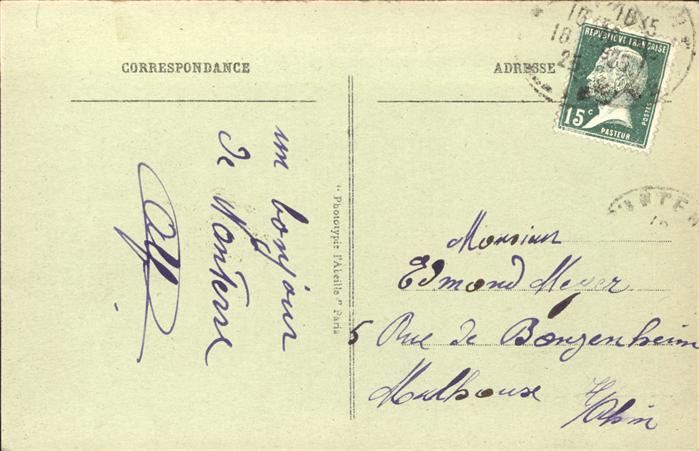 CORRESPONDANCE
un bonjour
de Nanterre
" Phototypie l'Abeille " Paris
ADRESSE
REPUBLIQUE FRANÇAISE
POSTES
15 c
PASTEUR
Monsieur
Edmond Meyer
5 Rue de Bonzenheim
Mulhouse
H/Rhin